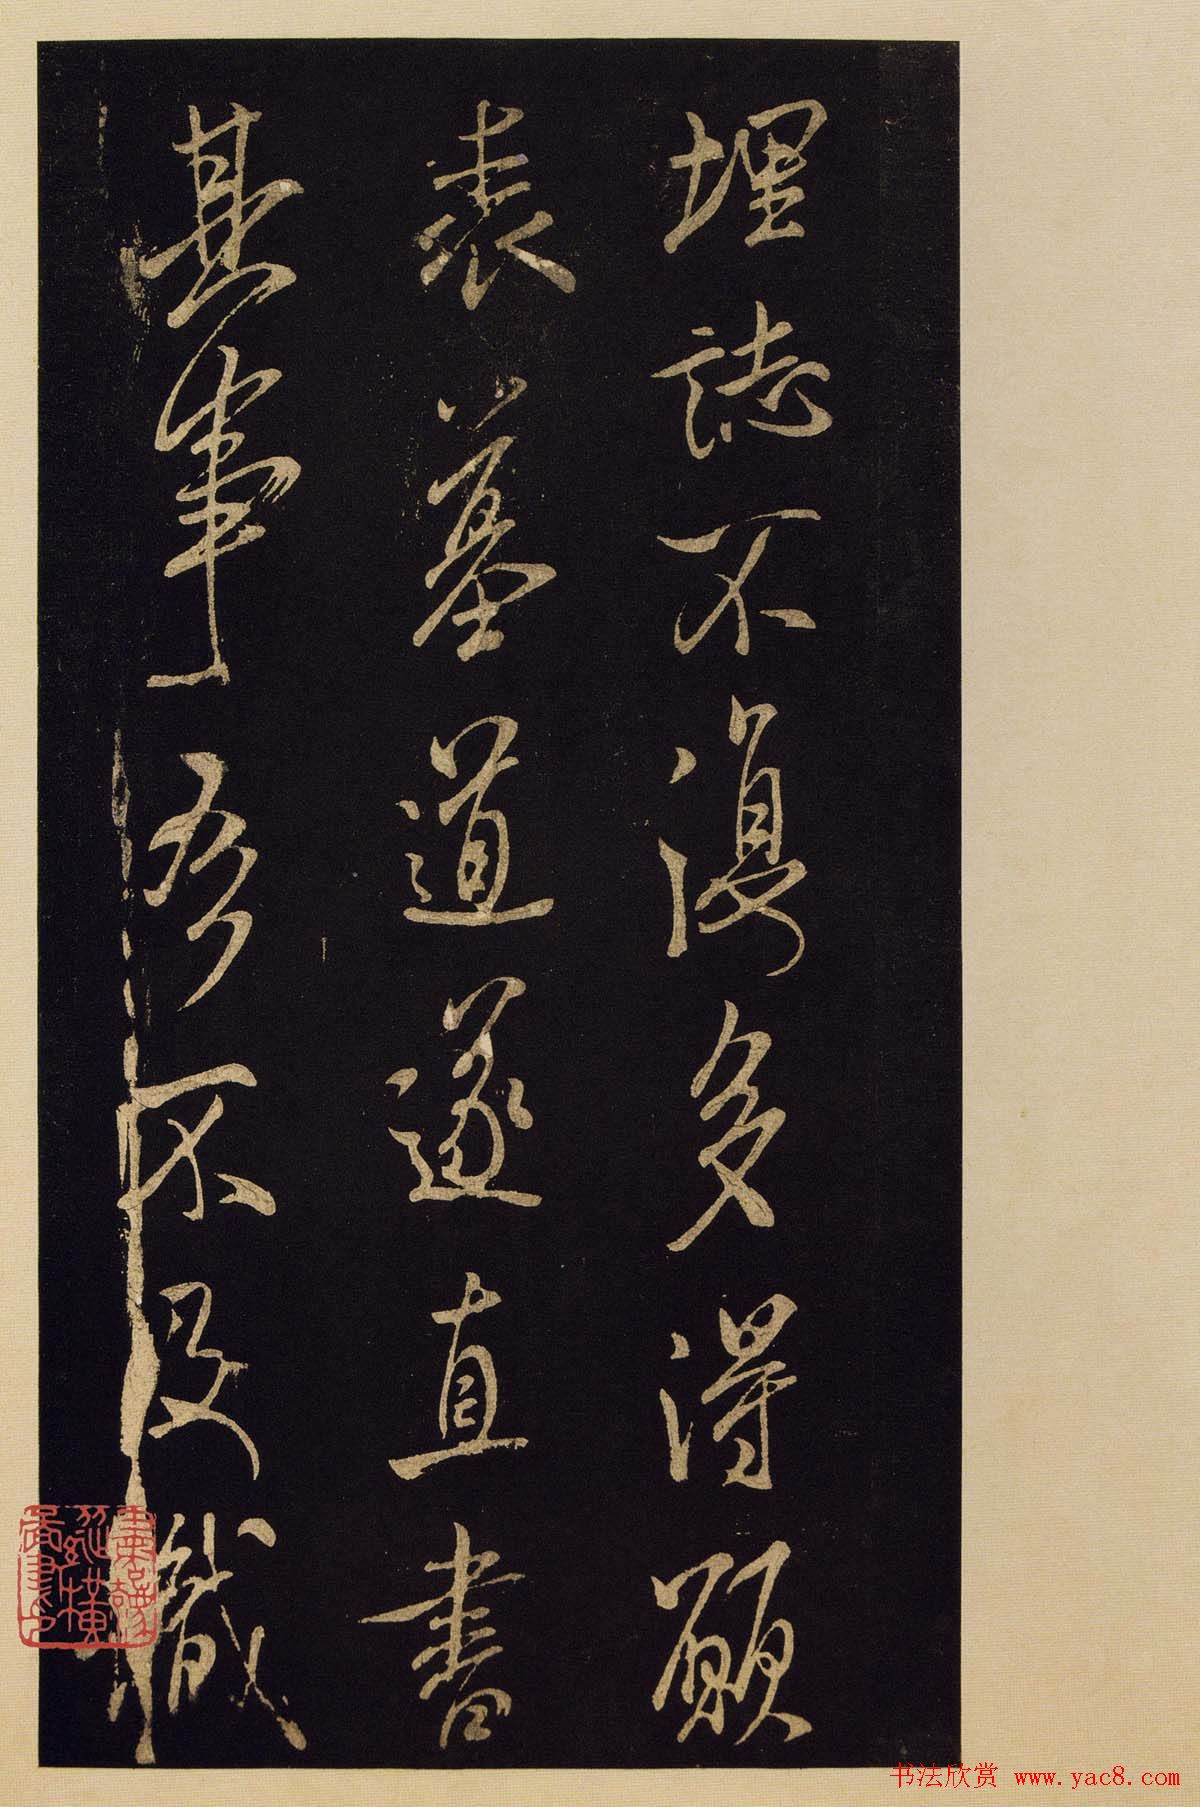 埋誌不復多得願
表墓道遂直書
其事吾不及識
书法欣赏 www.yac8.com